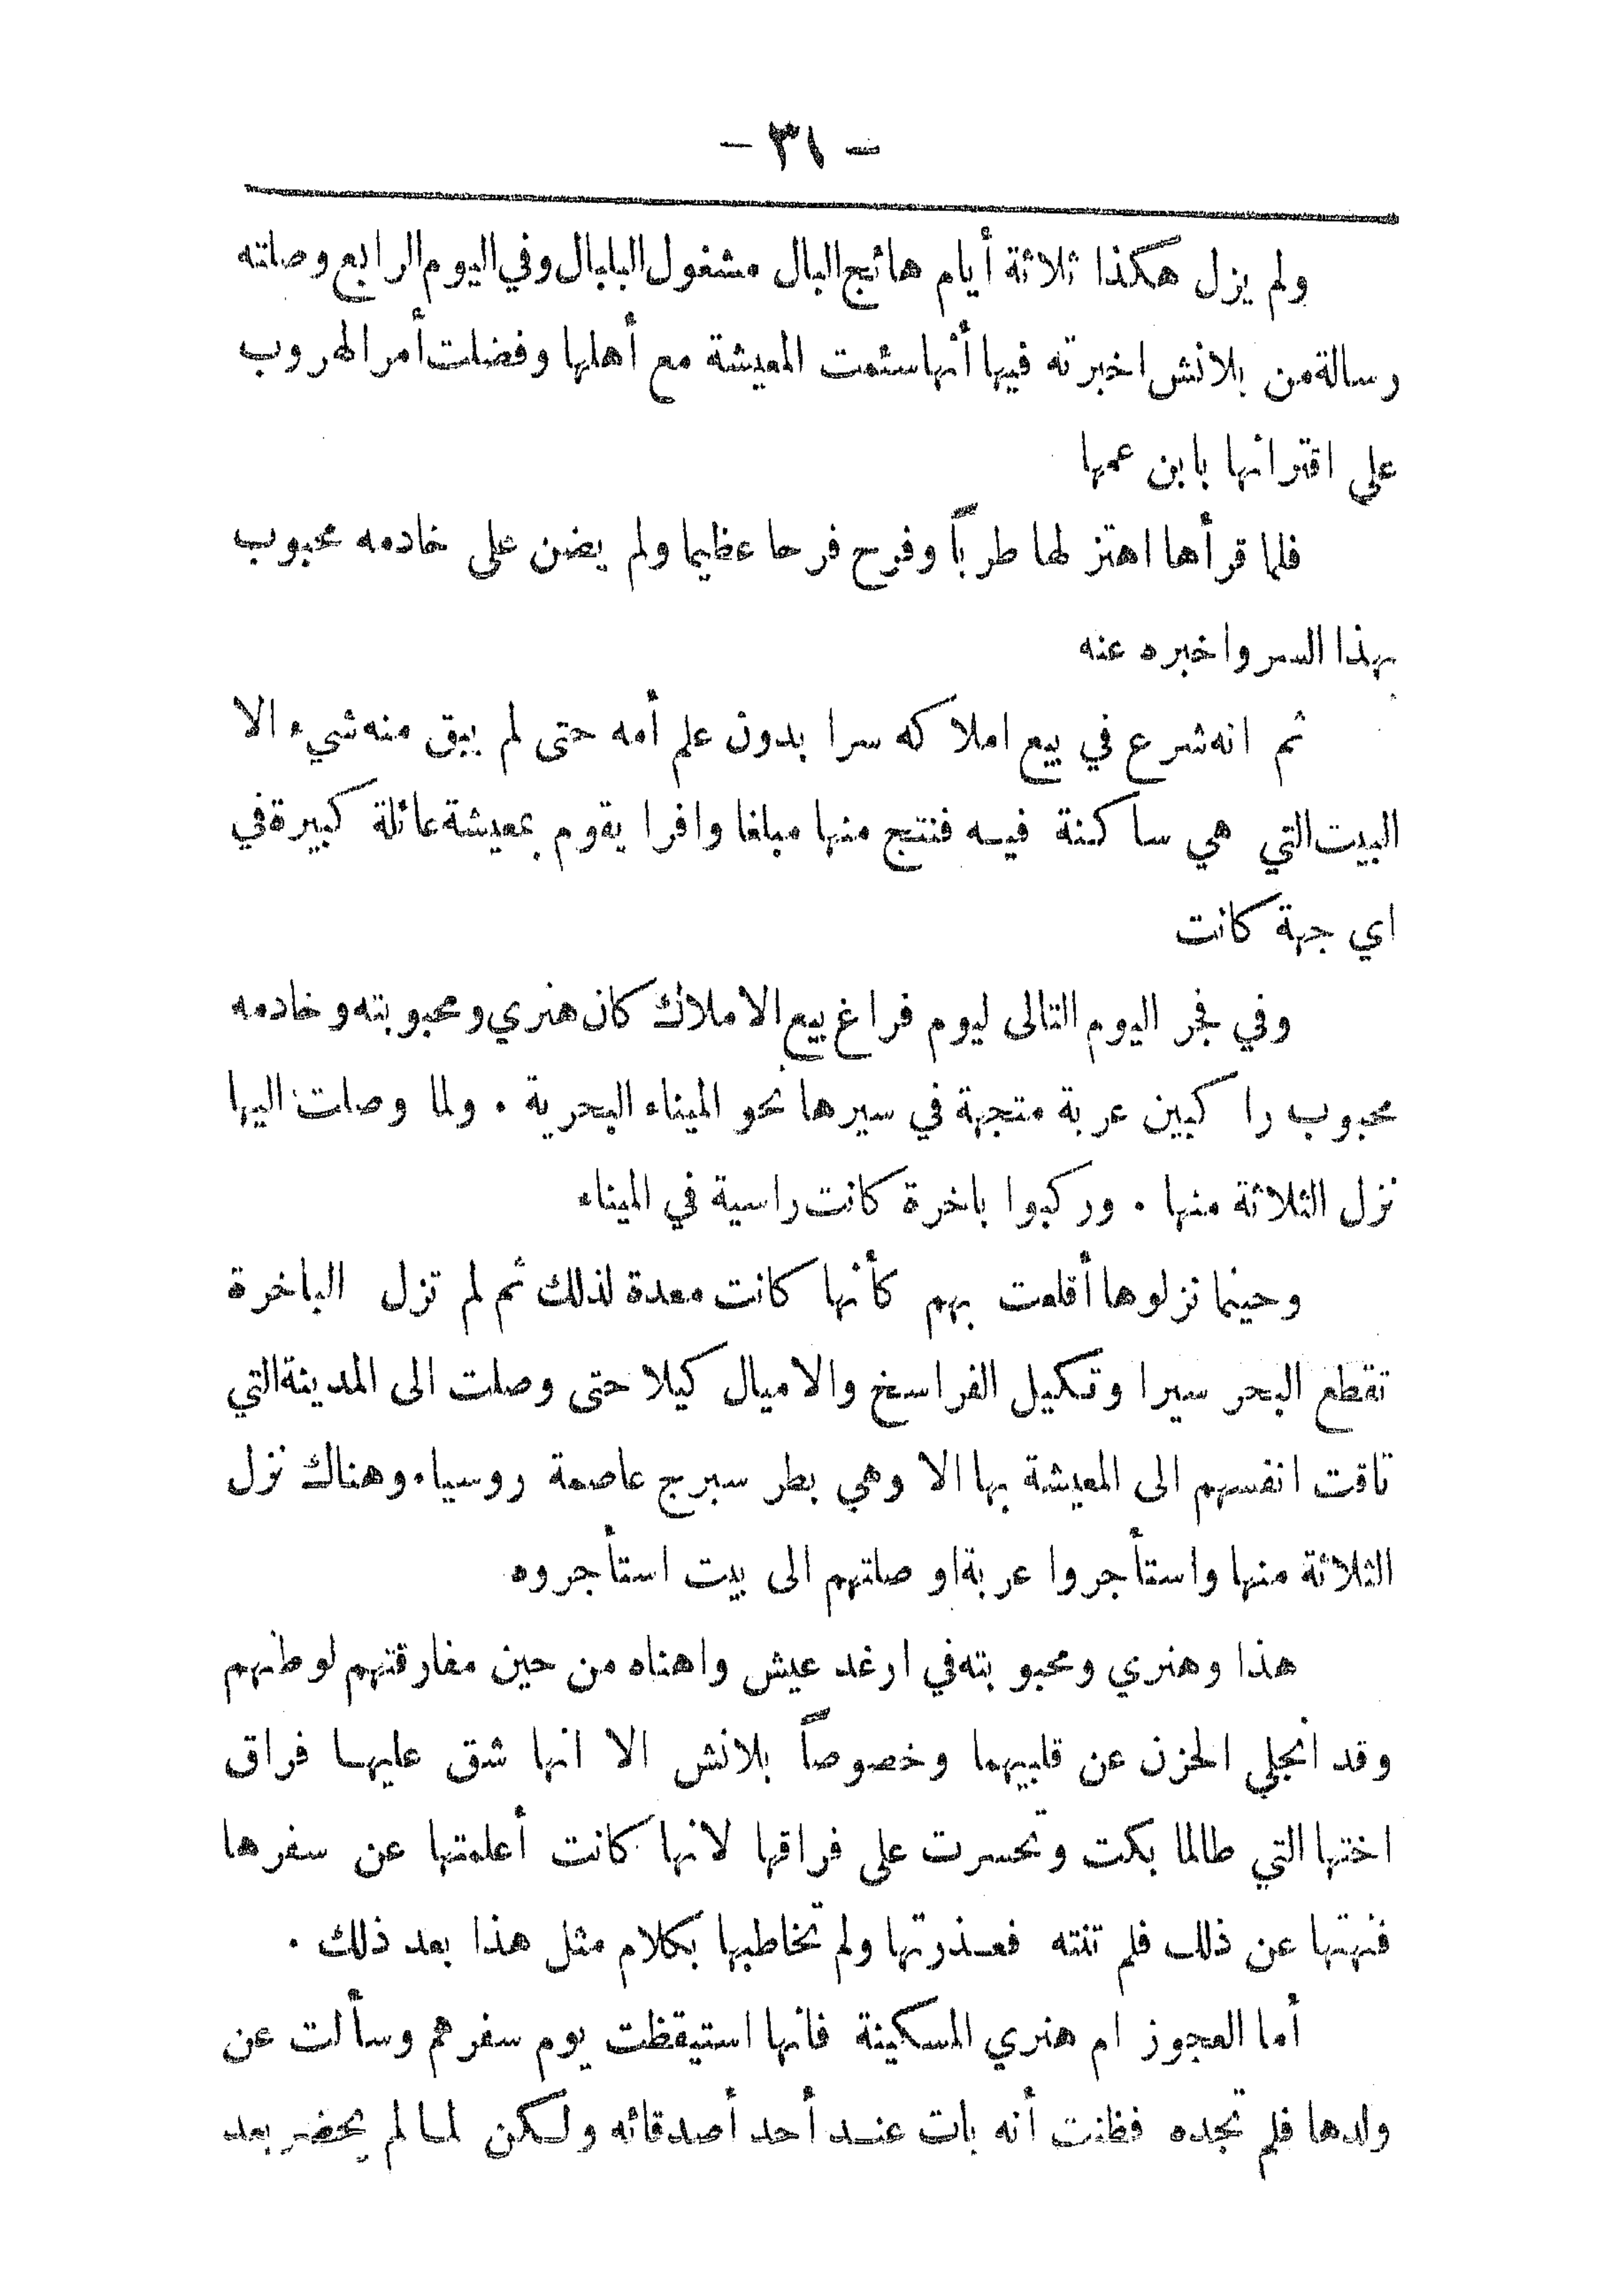 - ٣١ -
ولم يزل هكذا ثلاثة أيام هائج البال مشغول البلبال وفي اليوم الرابع وصلته
رسالة من بلانش اخبرته فيها أنها سئمت المعيشة مع أهلها وفضلت أمر الهروب
على اقترانها بابن عمها
فلما قرأها اهتز لها طرباً وفرح فرحا عظيما ولم يضن على خادمه محبوب
بهذا السر واخبره عنه
ثم انه شرع في بيع املاكه سرا بدون علم أمه حتى لم يبق منه شيء الا
البيت التي هي ساكنة فيه فنتج منها مبلغا وافرا يقوم بمعيشة عائلة كبيرة في
اي جهة كانت
وفي فجر اليوم التالى ليوم فراغ بيع الاملاك كان هنري ومحبوبته وخادمه
محبوب راكبين عربة متجهة في سيرها نحو الميناء البحرية . ولما وصلت اليها
نزل الثلاثة منها . وركبوا باخرة كانت راسية في الميناء
وحينما نزلوها أقلعت بهم كأنها كانت معدة لذلك ثم لم تزل الباخرة
تقطع البحر سيرا وتكيل الفراسخ والاميال كيلا حتى وصلت الى المدينة التي
تاقت انفسهم الى المعيشة بها الا وهي بطرسبرج عاصمة روسياء وهناك نزل
الثلاثة منها واستأجروا عربة اوصلتهم الى بيت استأجروه
هذا وهنري ومحبوبته في ارغد عيش واهناه من حين مفارقتهم لوطنهم
وقد انجلي الحزن عن قلبيهما وخصوصاً بلانش الا انها شق عليها فراق
اختها التي طالما بكت وتحسرت على فراقها لانها كانت أعلمتها عن سفرها
فنهتها عن ذلك فلم تنته فعذرتها ولم تخاطبها بكلام مثل هذا بعد ذلك .
أما العجوز ام هنري المسكينة فانها استيقظت يوم سفرهم وسألت عن
ولدها فلم تجده فظنت أنه بات عند أحد أصدقائه ولكن لما لم يحضر بعد